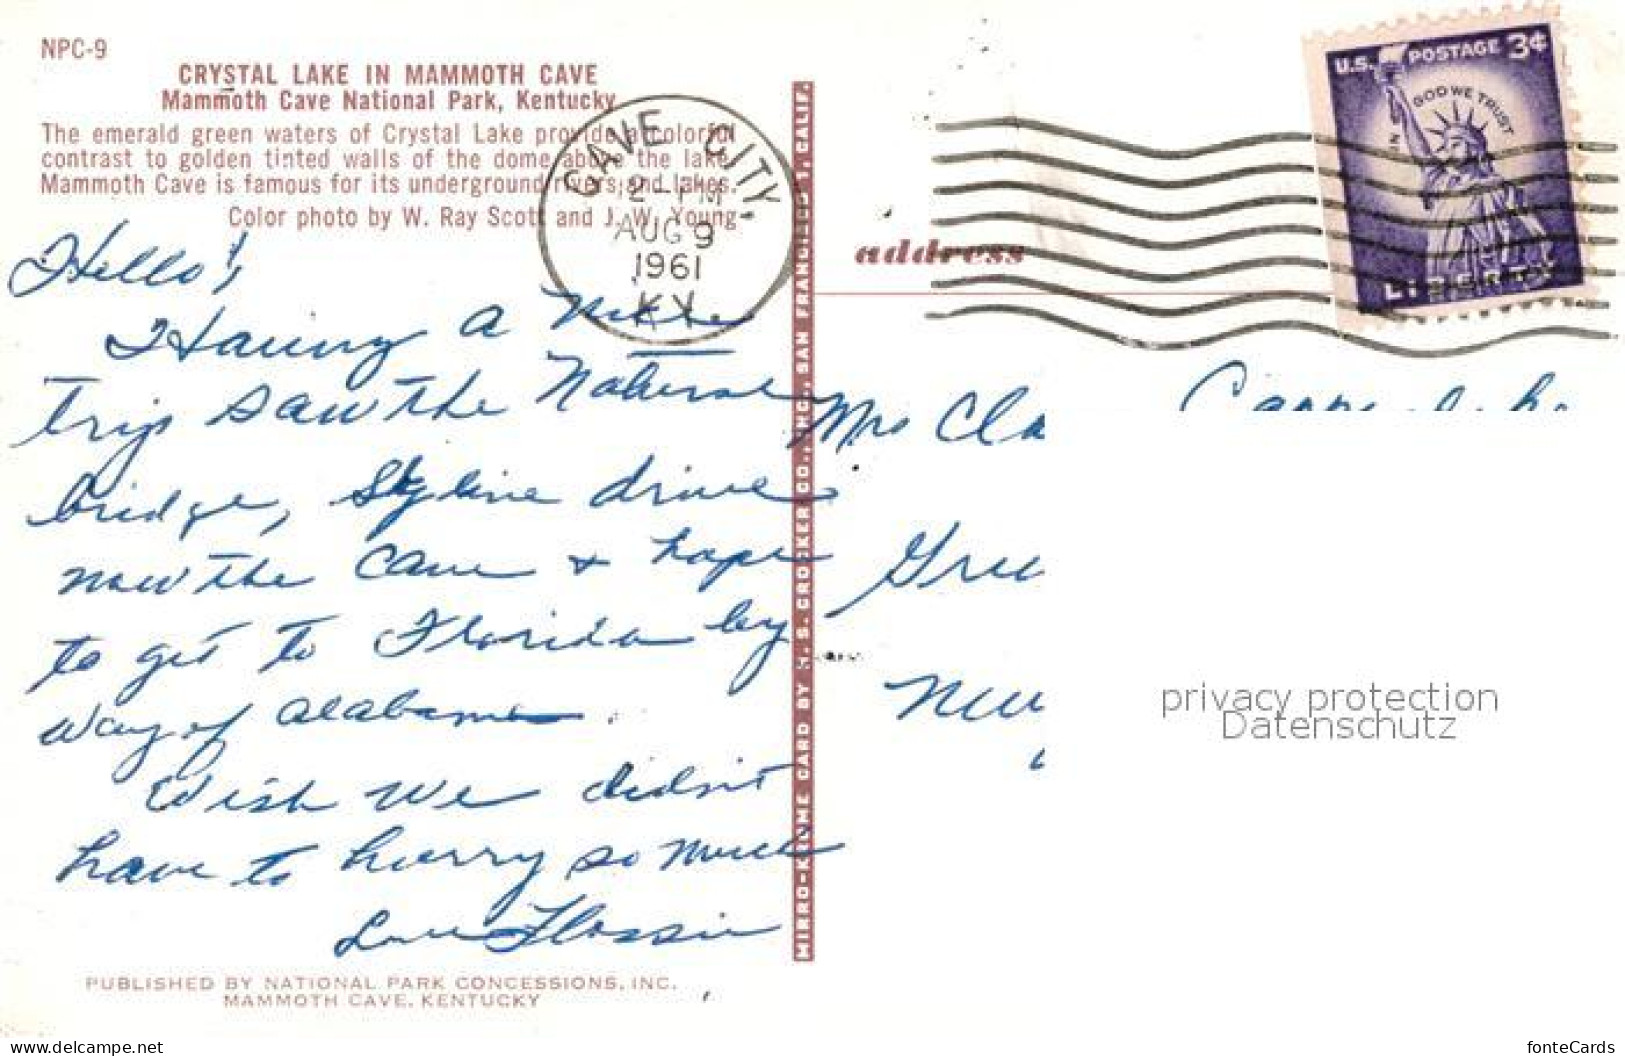 NPC-9
CRYSTAL LAKE IN MAMMOTH CAVE
Mammoth Cave National Park, Kentucky
The emerald green waters of Crystal Lake provide a colorful
contrast to golden tinted walls of the dome above the lake.
Mammoth Cave is famous for its underground rivers and lakes.
Color photo by W. Ray Scott and J. W. Young
CAVE CITY,
2 - PM
AUG 9
1961
KY
U.S. POSTAGE 3¢
IN GOD WE TRUST
LIBERTY
address
Hello!
Having a nice
trip saw the Natural
bridge, Skyline drive
now the cave + hope
to get to Florida by
way of Alabama.
Wish we didn't
have to hurry so much
Love Flossie
Mrs Cla
privacy protection
Datenschutz
MIRRO-KROME CARD BY H. S. CROCKER CO., INC., SAN FRANCISCO 1, CALIF.
PUBLISHED BY NATIONAL PARK CONCESSIONS, INC.
MAMMOTH CAVE, KENTUCKY
www.delcampe.net
fonteCards